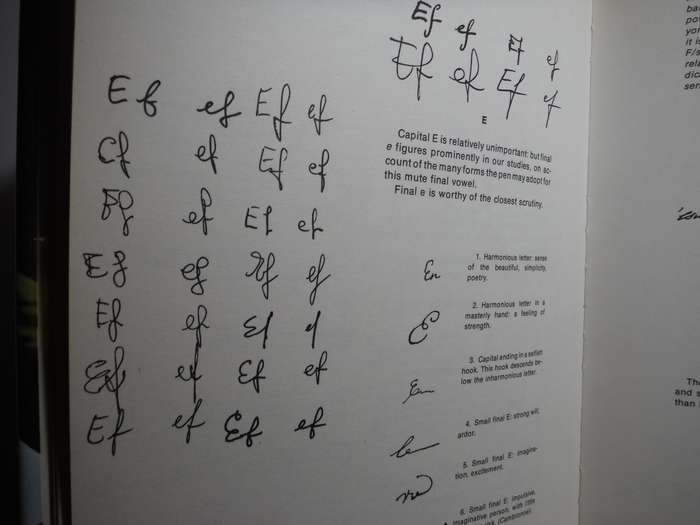 Ef ef
Ef ef
Ef ef Ef ef
Ef ef Ef ef
Ef ef Ef ef
Ef ef Ef ef
Ef ef Ef ef
Ef ef Ef ef
Ef ef Ef ef
Ef ef Ef ef
Ef ef Ef ef
E
Capital E is relatively unimportant: but final
e figures prominently in our studies, on ac-
count of the many forms the pen may adopt for
this mute final vowel.
Final e is worthy of the closest scrutiny.
En
1. Harmonious letter: sense
of the beautiful, simplicity,
poetry.
E
2. Harmonious letter in a
masterly hand: a feeling of
strength.
3. Capital ending in a selfish
hook. This hook descends be-
low the inharmonious letter.
le
4. Small final E: strong will,
ardor.
5. Small final E: imagina-
tion, excitement.
6. Small final E: impulsive,
imaginative person, with little
(Cambronne).
ba
po
yo
it is
F/s
rela
dic
sen
The
and s
than